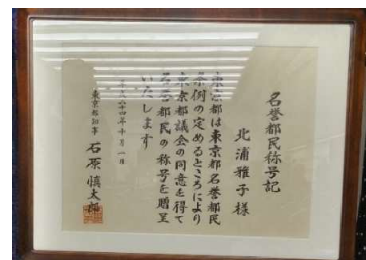 名誉都民称号記
北浦雅子様
東京都は東京都名誉都民
条例の定めるところにより
東京都議会の同意を得て
名誉都民の称号を贈呈
いたします
平成二十四年十月一日
東京都知事 石原慎太郎